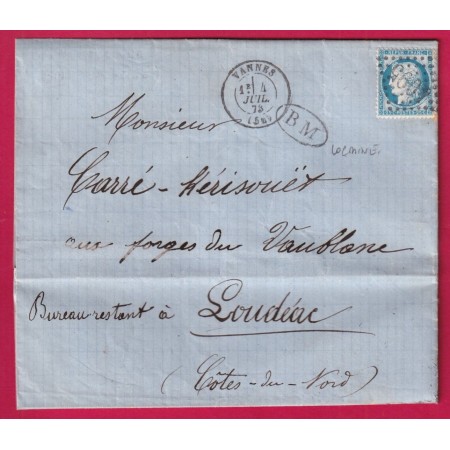 VANNES
1E 4
JUIL.
75
(54)
REPUB. FRANC.
BM
LOCMINÉ
Monsieur
Carré-Hérisouët
aux forges du Vaublanc
Bureau restant à Loudéac
(Côtes-du-Nord)